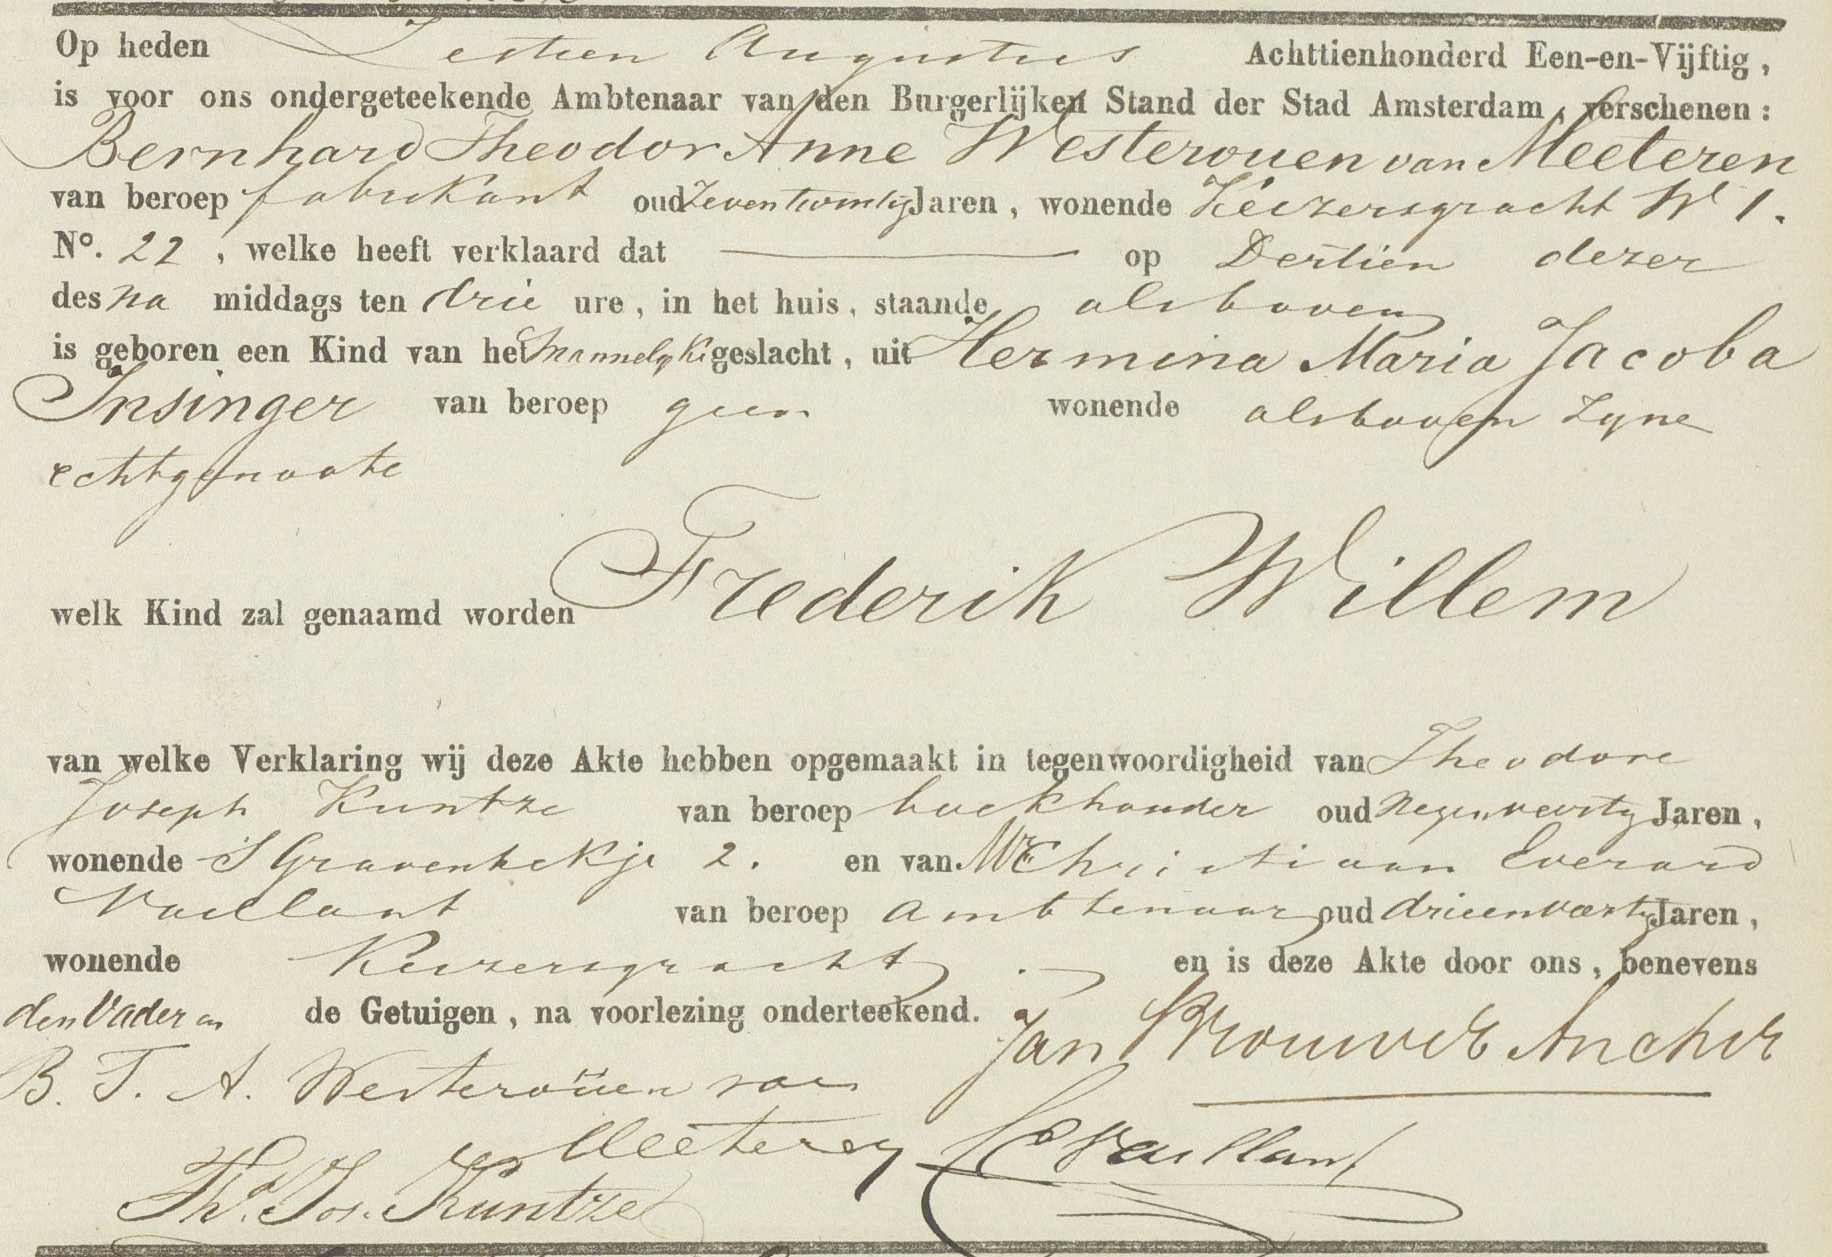 Op heden Zestien Augustus Achttienhonderd Een-en-Vijftig,
is voor ons ondergeteekende Ambtenaar van den Burgerlijken Stand der Stad Amsterdam, verschenen:
Bernhard Theodor Anne Westerouen van Meeteren
van beroep fabrikant oud Zeventwintig Jaren, wonende Keizersgracht W 1.
No. 22, welke heeft verklaard dat op Dertien dezer
des na middags ten drie ure, in het huis, staande alsboven
is geboren een Kind van het Mannelyke geslacht, uit Hermina Maria Jacoba
Insinger van beroep geen wonende alsboven zyne
echtgenoote
welk Kind zal genaamd worden Frederik Willem
van welke Verklaring wij deze Akte hebben opgemaakt in tegenwoordigheid van Theodore
Joseph Kuntze van beroep boekhouder oud Negenveertig Jaren,
wonende S Gravenhekje 2. en van Mr Christiaan Everard
Vaillant van beroep Ambtenaar oud drieenveertig Jaren,
wonende Keizersgracht en is deze Akte door ons, benevens
den Vader en de Getuigen, na voorlezing onderteekend.
Jan Brouwer Ancher
B. T. A. Westerouën van
Meeteren
CE Vaillant
Thd. Jos. Kuntze